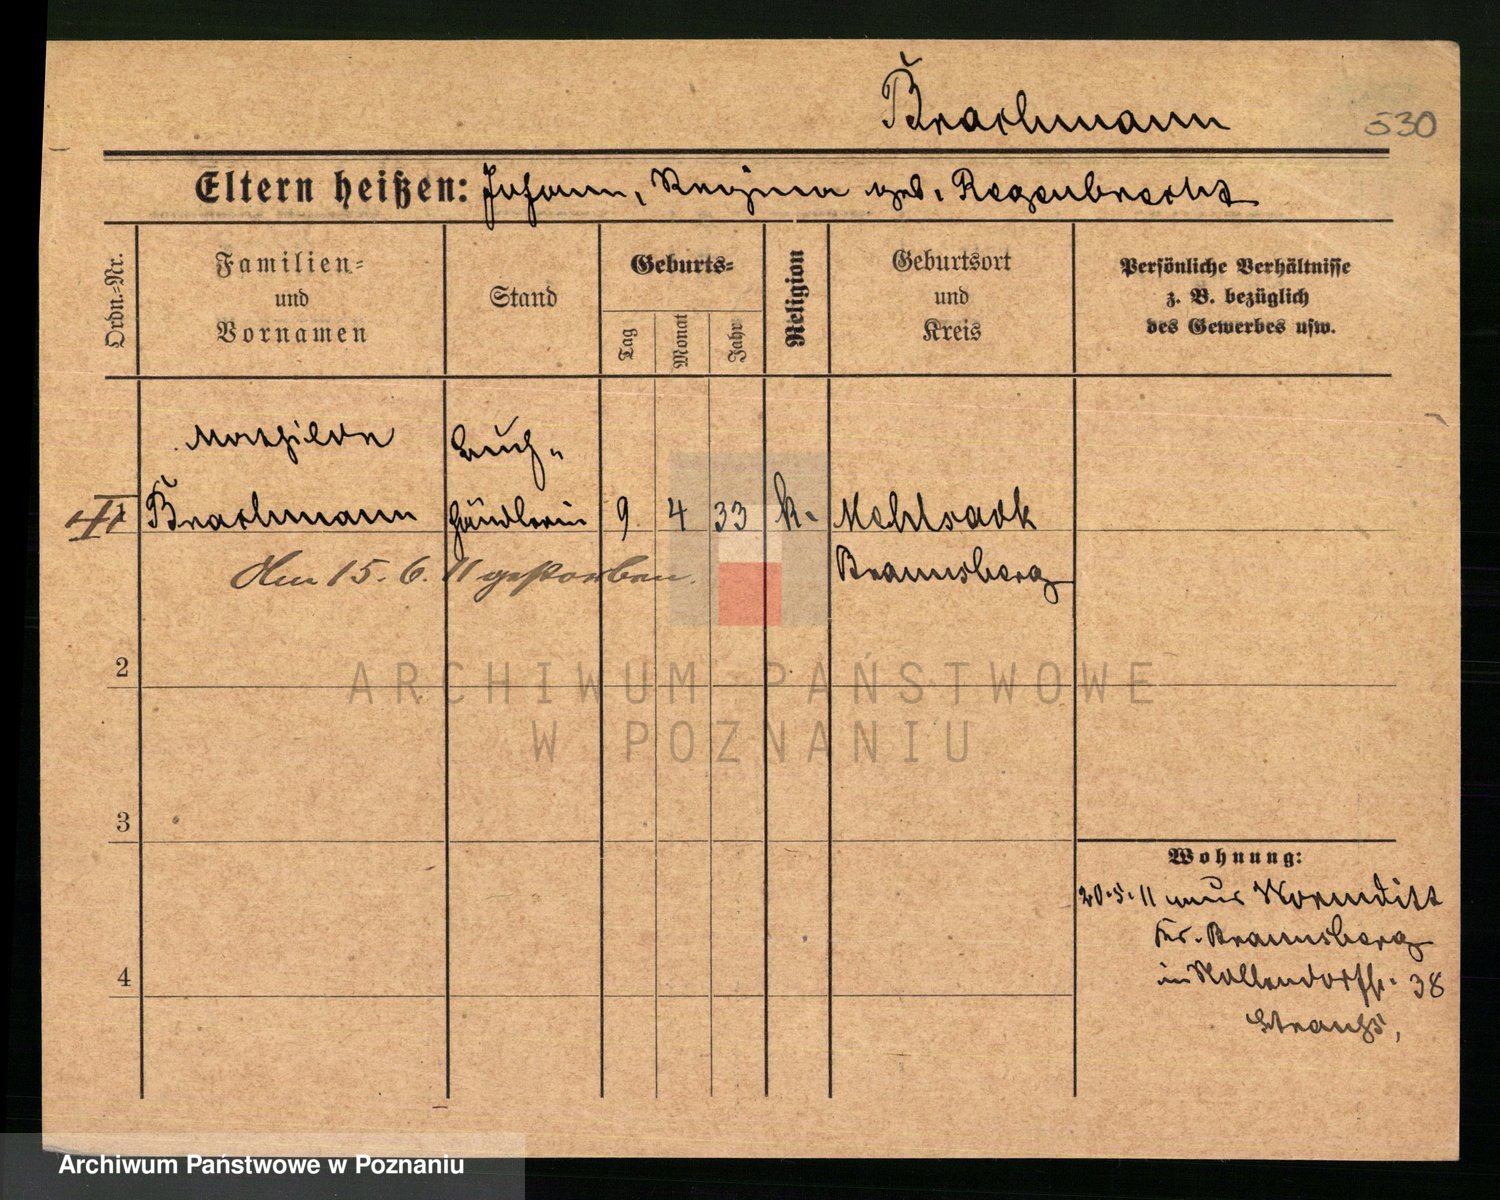 Brachmann
530
Eltern heißen: Johann, Regina geb. Regenbrecht
Ordn.-Nr.
Familien-
und
Vornamen
Stand
Geburts-
Tag
Monat
Jahr
Religion
Geburtsort
und
Kreis
Persönliche Verhältnisse
z. B. bezüglich
des Gewerbes usw.
Mathilde
Brachmann
händlerin
9
4
33
k.
Mehlsack
Braunsberg
Am 15. 6. 11 gestorben.
2
3
4
Wohnung:
20.5.11 aus Wormditt
Kr. Braunsberg
in Nollendorfstr. 38
ARCHIWUM PAŃSTWOWE
W POZNANIU
Archiwum Państwowe w Poznaniu